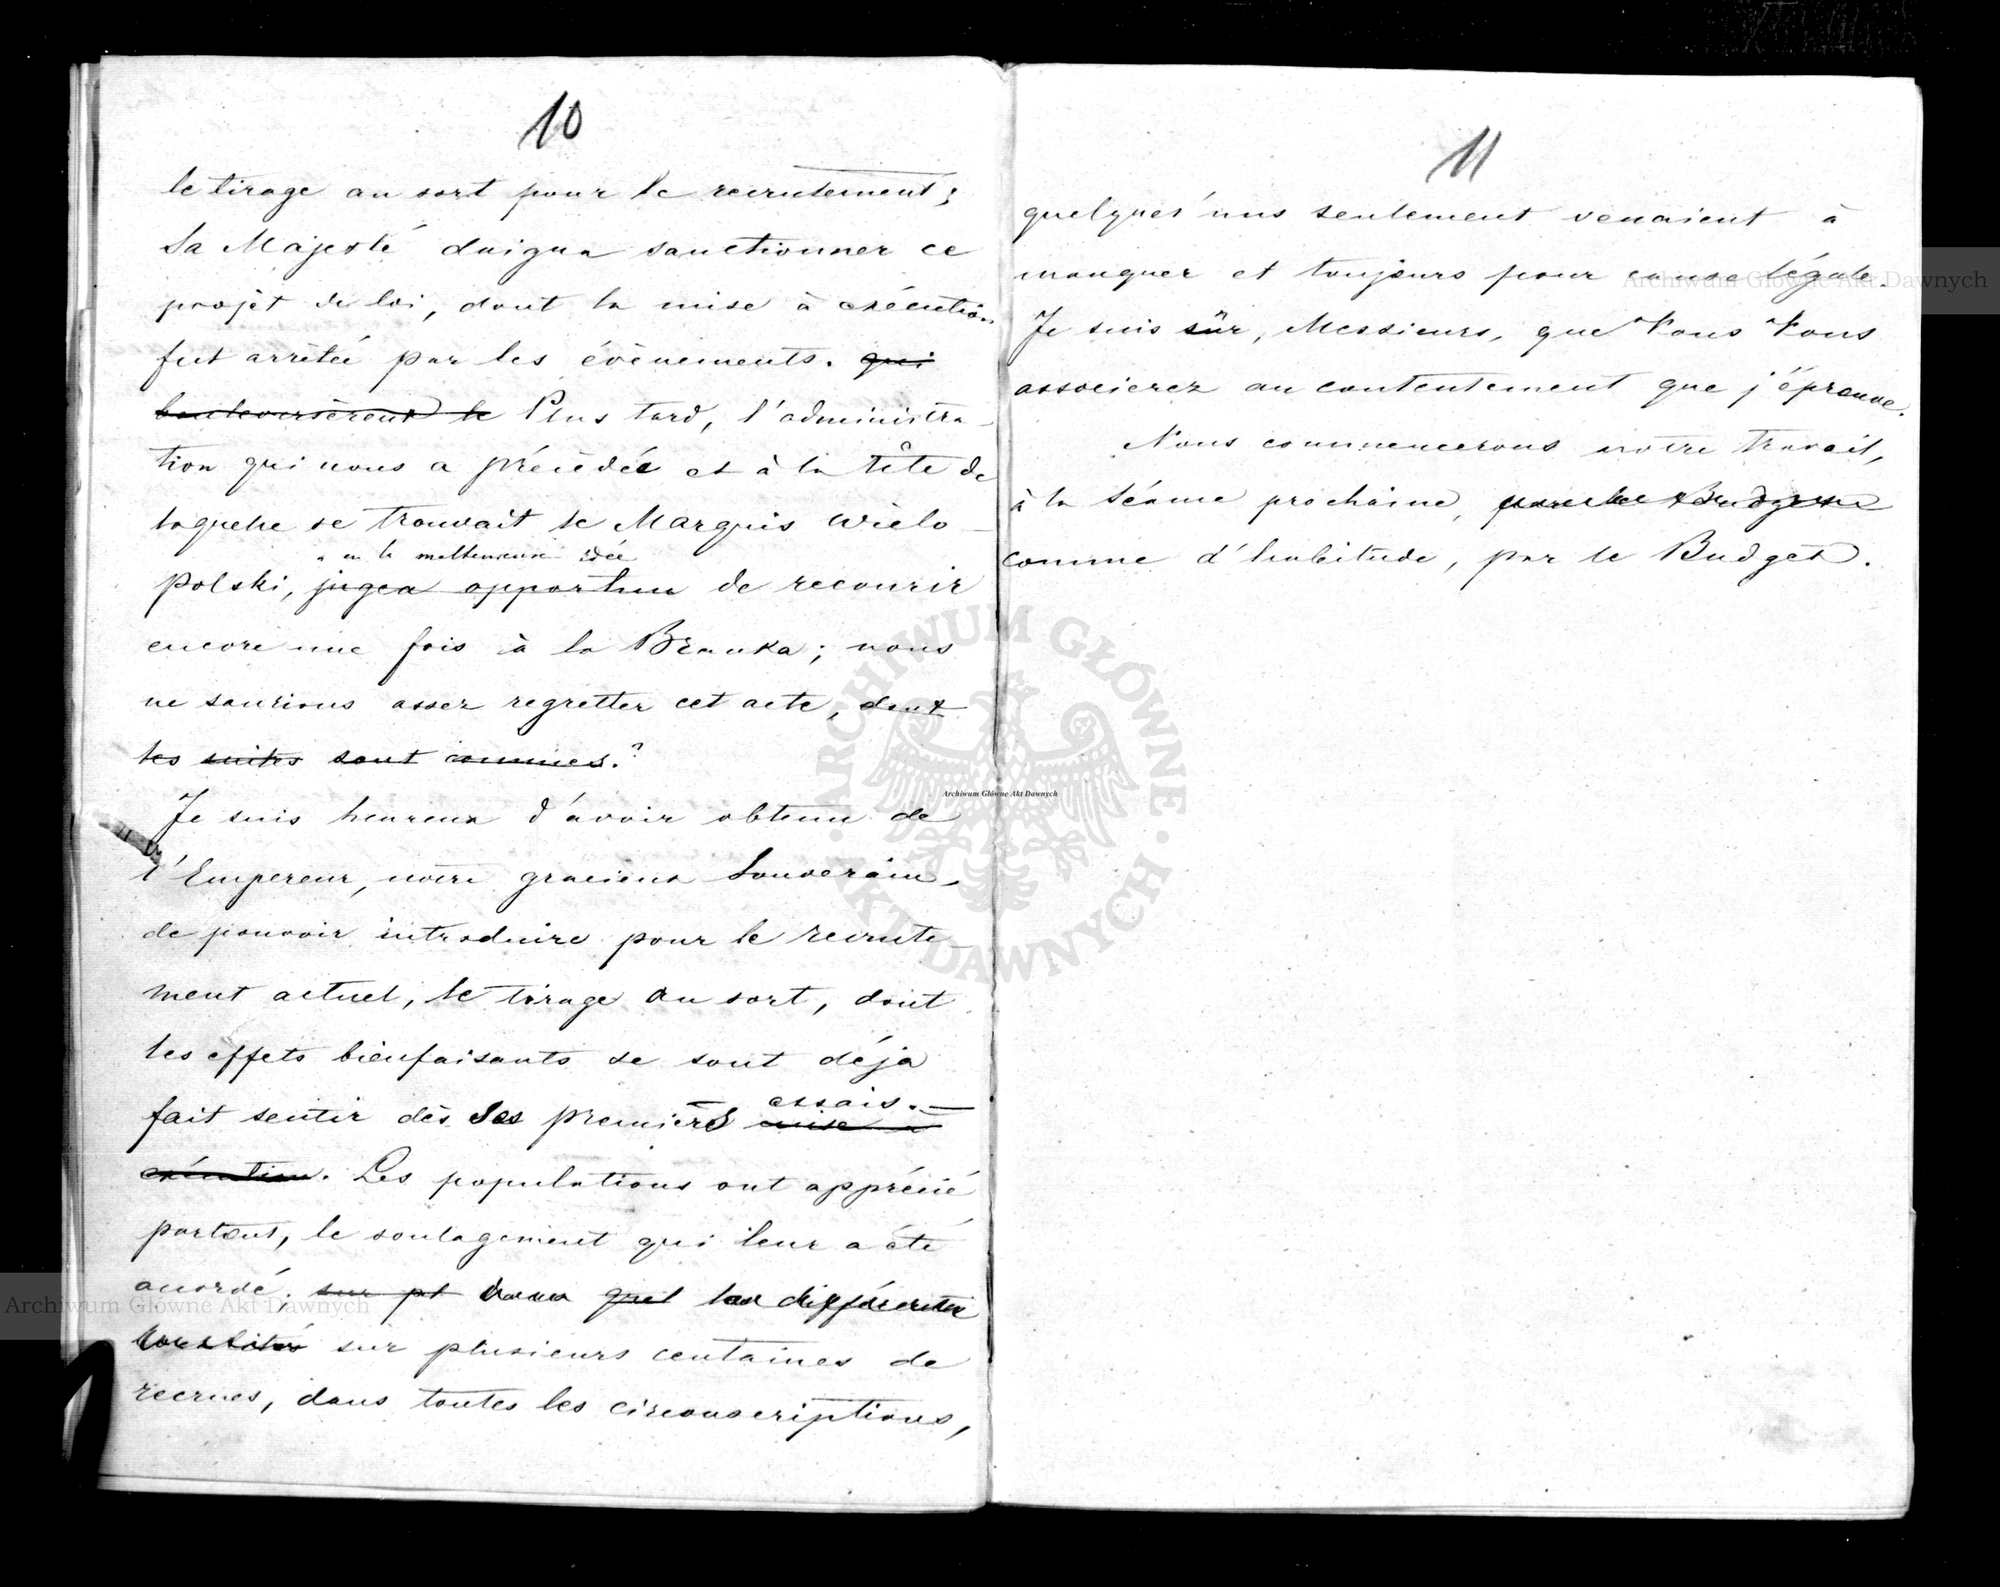 10
le tirage au sort pour le recrutement;
Sa Majesté daigna sanctionner ce
projèt de loi, dont la mise à exécution
fut arrêtée par les évènements. qui
bouleversèrent le Plus tard, l'administra-
tion qui nous a précédée et à la tête de
laquelle se trouvait le Marquis Wielo-
a eu la malheureuse idée
polski, jugea opportun de recourir
encore une fois à la Branka; nous
ne saurions assez regretter cet acte, dont
les suites sont connues.
Je suis heureux d'avoir obtenu de
l'Empereur, notre gracieux Souverain,
de pouvoir introduire pour le recrute-
ment actuel, le tirage au sort, dont
les effets bienfaisants se sont déja
essais.—
fait sentir dès ses premièrs mise à
exécution. Les populations ont apprécié
partout, le soulagement qui leur a été
accordé, sur pt que les différentes
localités sur plusieurs centaines de
recrues, dans toutes les circonscriptions,
11
quelques'uns seulement venaient à
manquer et toujours pour cause légale.
Je suis sûr, Messieurs, que Vous Vous
associerez au contentement que j'éprouve.
Nous commencerons notre travail,
à la séance prochaine, par le Budget
comme d'habitude, par le Budget.
Archiwum Główne Akt Dawnych
ARCHIWUM GŁÓWNE
AKT DAWNYCH
Archiwum Główne Akt Dawnych
Archiwum Główne Akt Dawnych